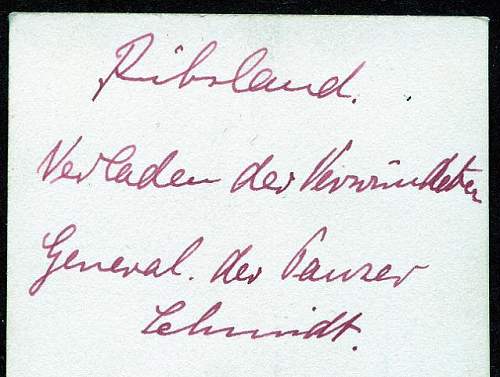 Rußland.
Verladen der Verwundeten
General. der Panzer
Schmidt.